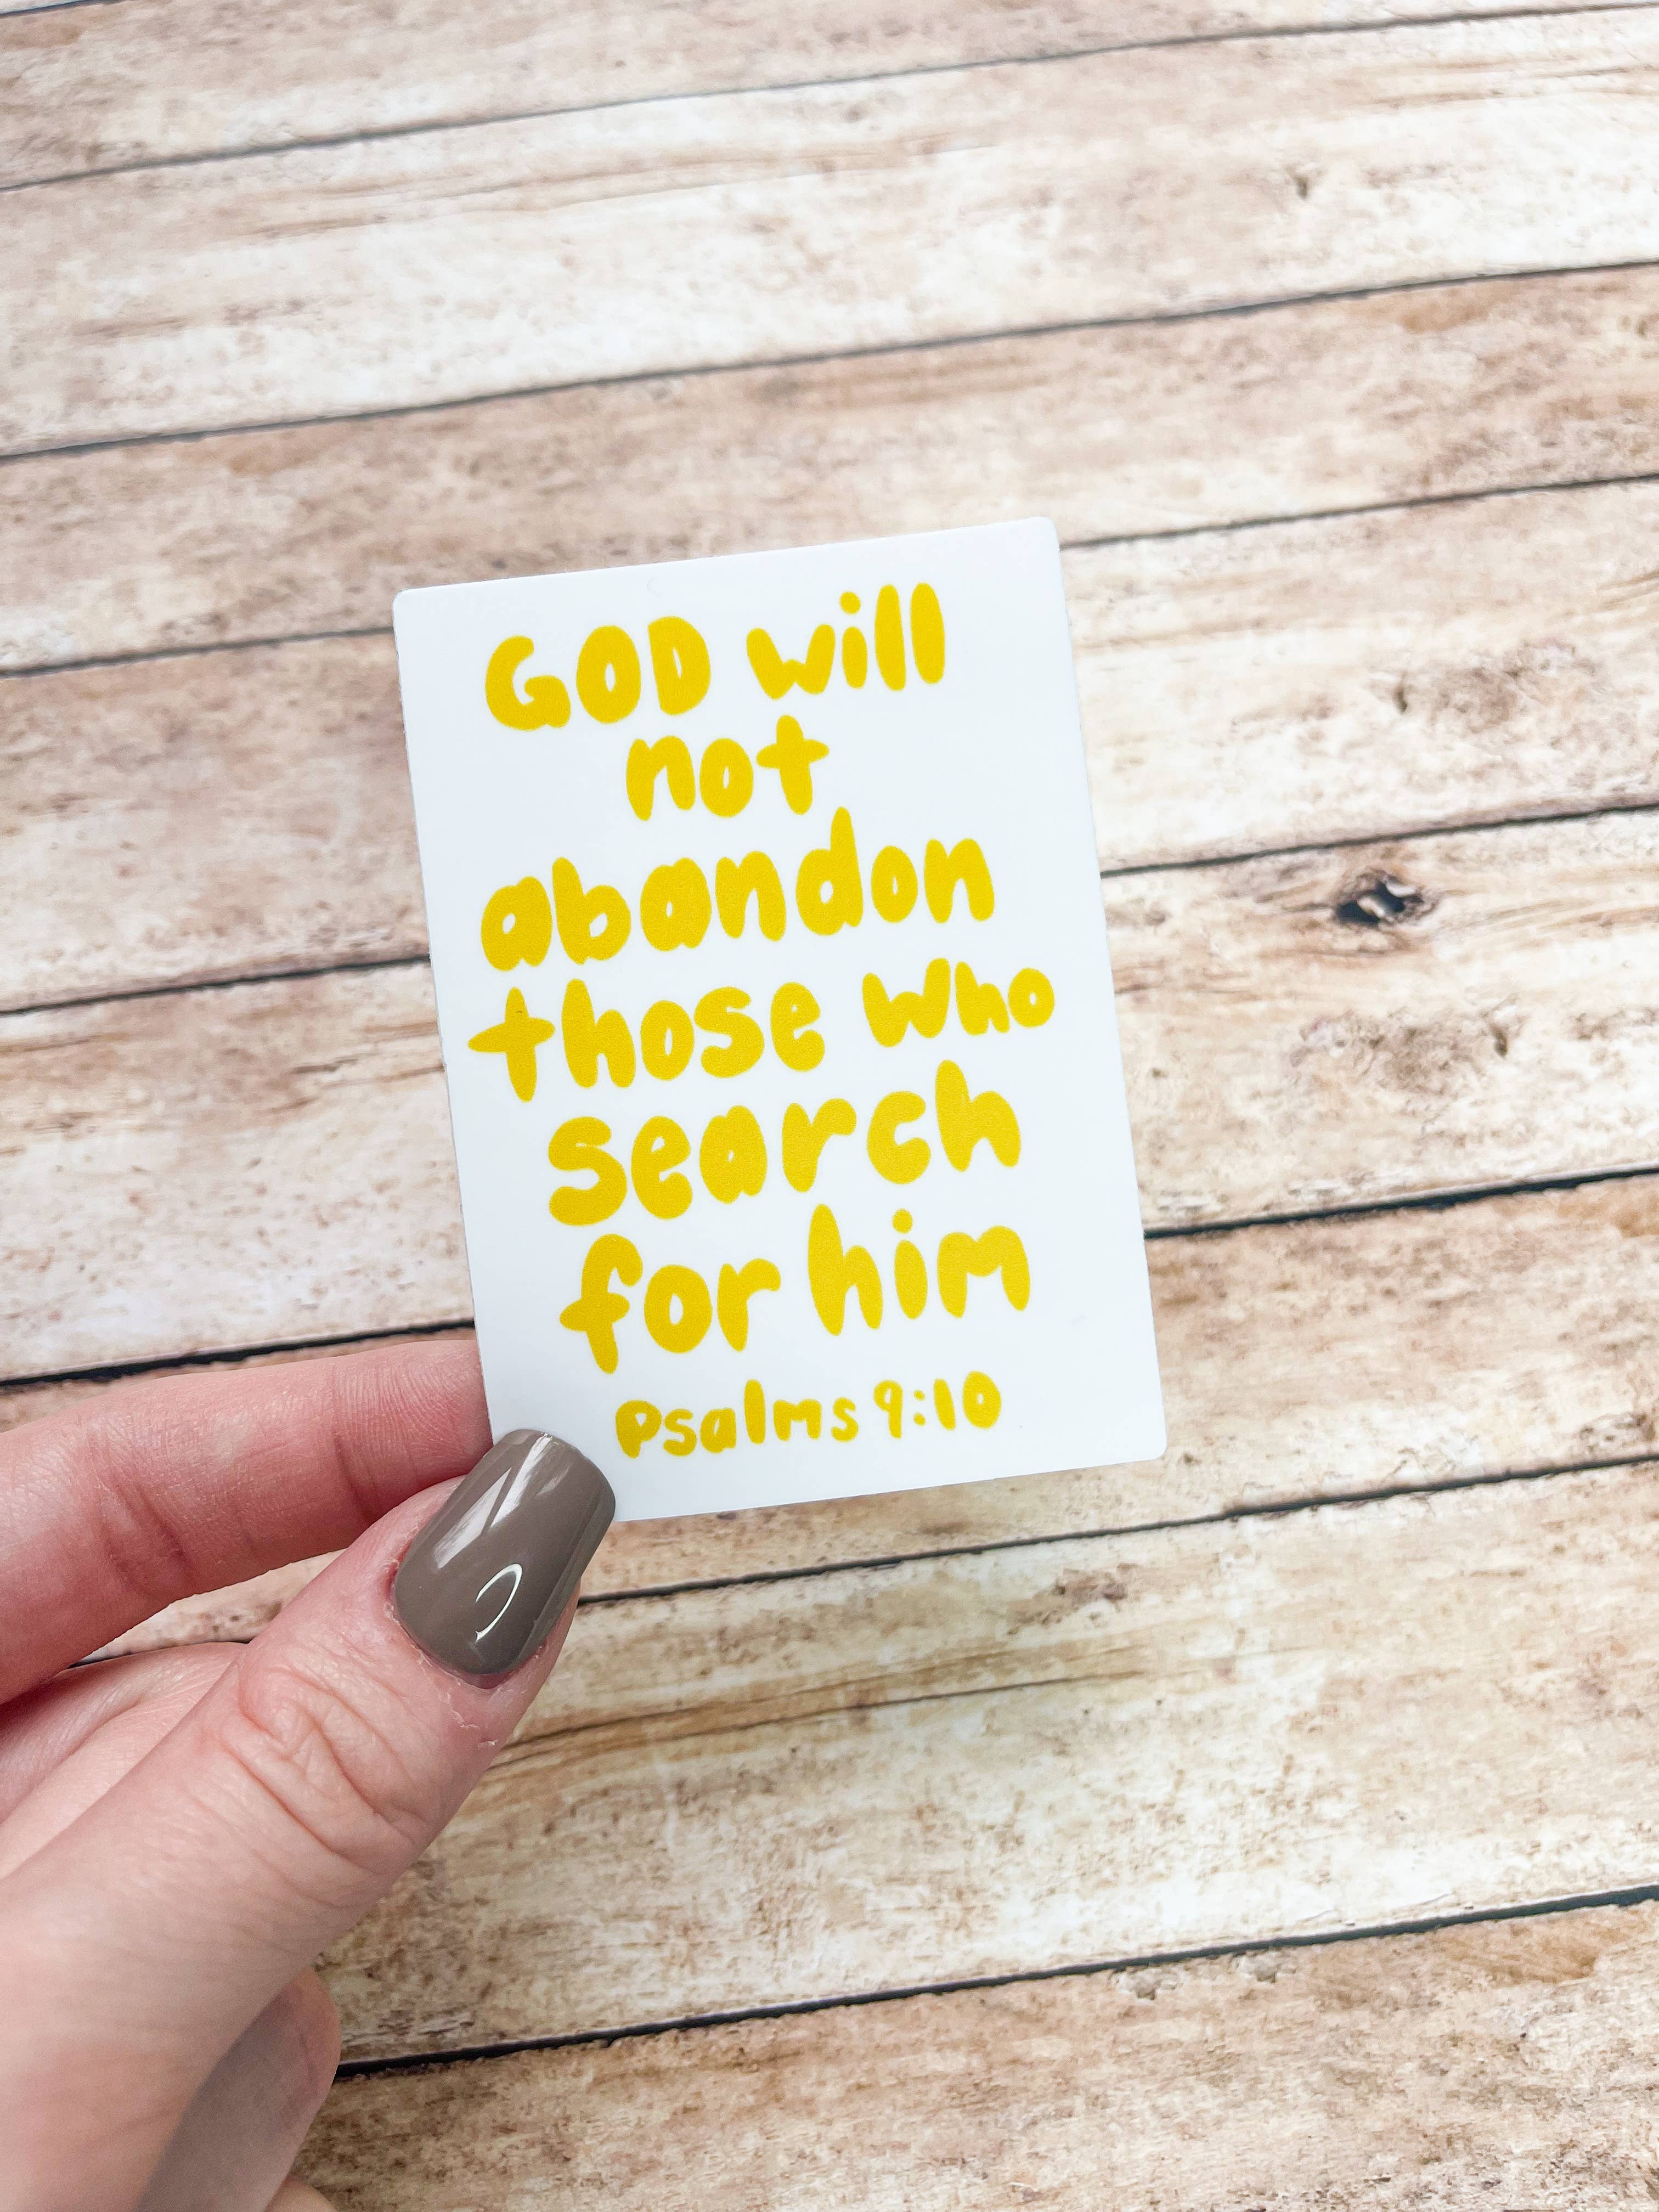 GOD will
not
abandon
those who
search
for him
Psalms 9:10